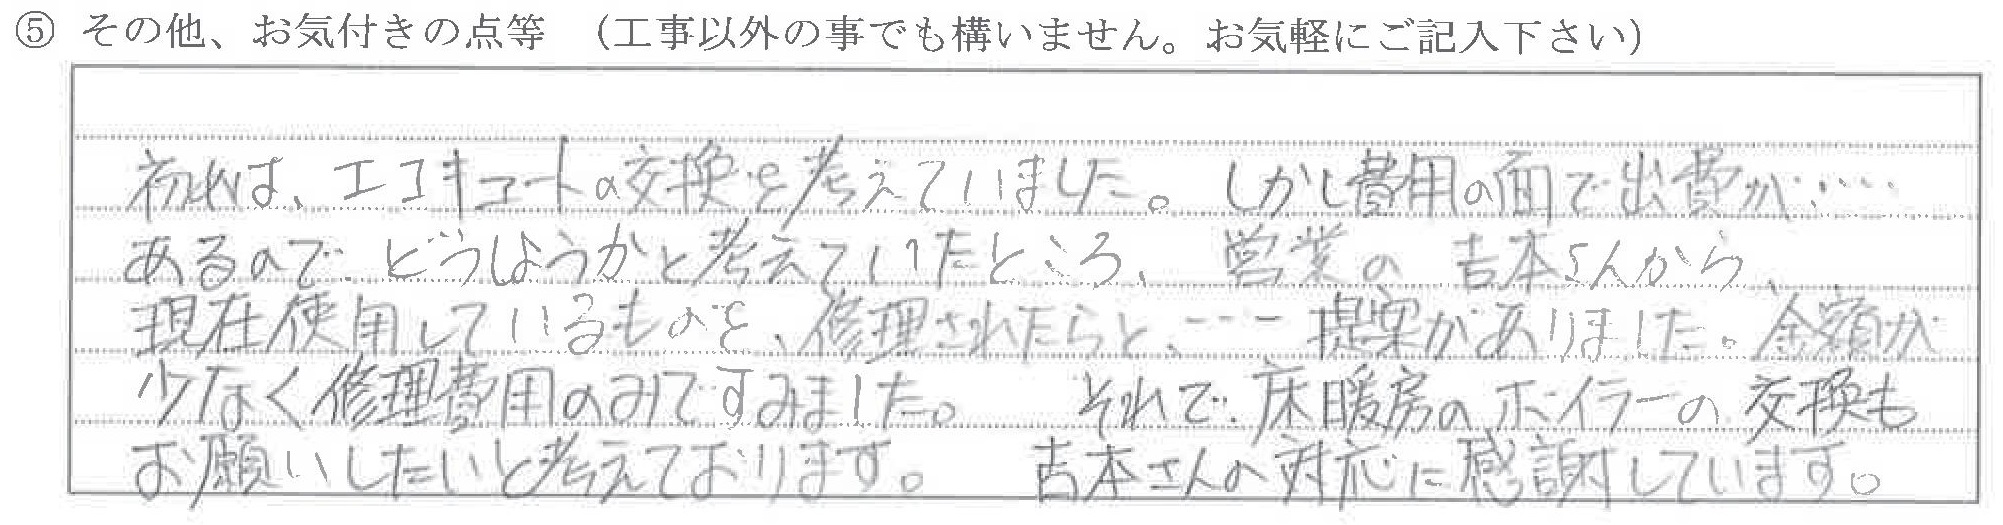 ⑤ その他、お気付きの点等 （工事以外の事でも構いません。お気軽にご記入下さい）
初めは、エコキュートの交換を考えていました。しかし費用の面で出費が……
あるので、どうしようかと考えていたところ、営業の吉本さんから、
現在使用しているものを、修理されたらと、…提案がありました。金額が
少なく修理費用のみですみました。 それで、床暖房のボイラーの交換も
お願いしたいと考えております。 吉本さんの対応に感謝しています。